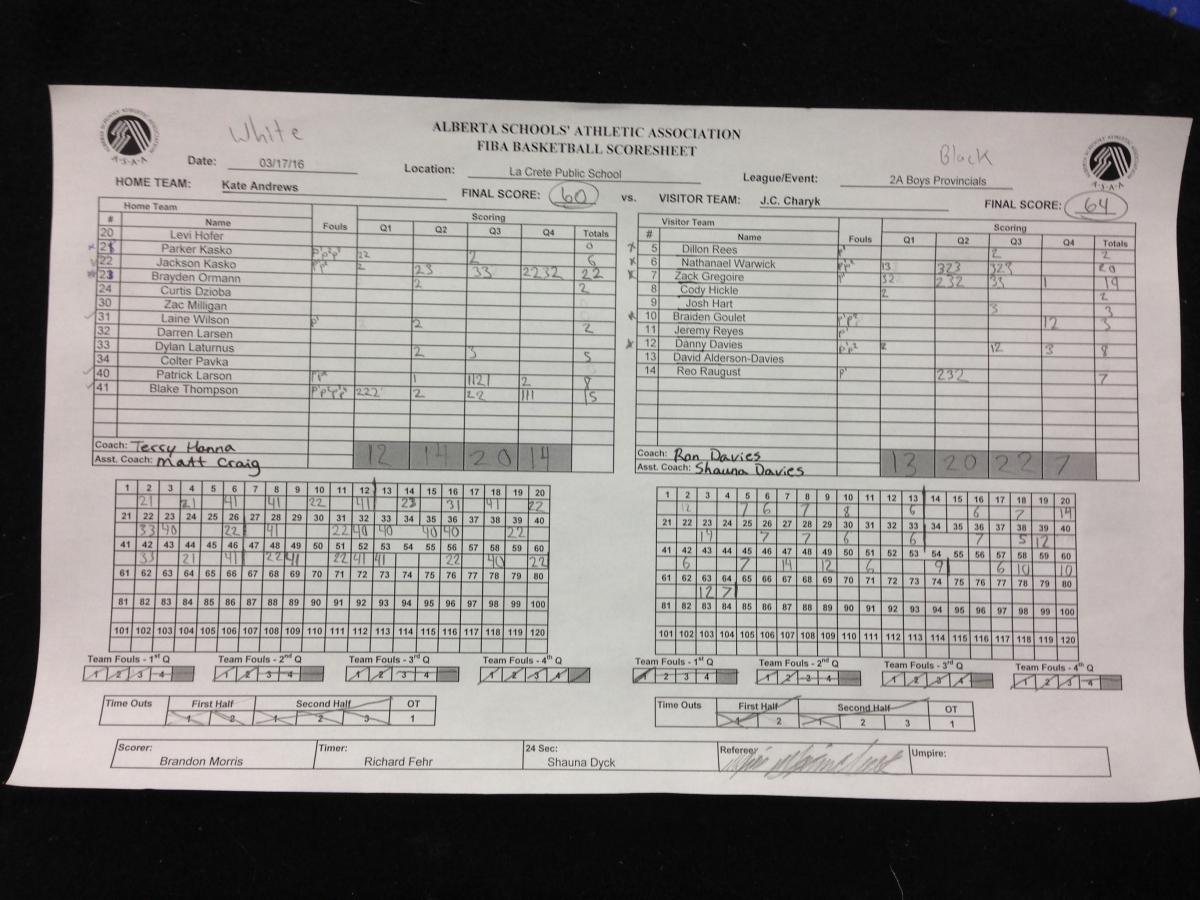 White
ALBERTA SCHOOLS' ATHLETIC ASSOCIATION
FIBA BASKETBALL SCORESHEET
Black
A·S·A·A
A·S·A·A
Date: 03/17/16 Location: La Crete Public School League/Event: 2A Boys Provincials
HOME TEAM: Kate Andrews FINAL SCORE: 60 vs. VISITOR TEAM: J.C. Charyk FINAL SCORE: 64
Home Team Scoring
# Name Fouls Q1 Q2 Q3 Q4 Totals
20 Levi Hofer 0
21 Parker Kasko 22 2 6
22 Jackson Kasko 2 23 33 2232 22
23 Brayden Ormann 2 2
24 Curtis Dzioba
30 Zac Milligan
31 Laine Wilson 2 2
32 Darren Larsen
33 Dylan Laturnus 2 3 5
34 Colter Pavka
40 Patrick Larson 1 1121 2 8
41 Blake Thompson 222 2 22 111 15
Coach: Terry Hanna
Asst. Coach: Matt Craig
12 14 20 14
Visitor Team Scoring
# Name Fouls Q1 Q2 Q3 Q4 Totals
5 Dillon Rees 2 2
6 Nathanael Warwick 13 323 323 20
7 Zack Gregoire 32 232 33 1 19
8 Cody Hickle 2 2
9 Josh Hart 3 3
10 Braiden Goulet 12 3
11 Jeremy Reyes
12 Danny Davies 2 12 3 8
13 David Alderson-Davies
14 Reo Raugust 232 7
Coach: Ron Davies
Asst. Coach: Shauna Davies
13 20 22 7
1 2 3 4 5 6 7 8 9 10 11 12 13 14 15 16 17 18 19 20
21 21 41 41 22 41 23 31 41 22
21 22 23 24 25 26 27 28 29 30 31 32 33 34 35 36 37 38 39 40
33 40 22 41 22 40 40 40 40 22
41 42 43 44 45 46 47 48 49 50 51 52 53 54 55 56 57 58 59 60
33 21 41 22 41 22 41 41 22 40 22
61 62 63 64 65 66 67 68 69 70 71 72 73 74 75 76 77 78 79 80
81 82 83 84 85 86 87 88 89 90 91 92 93 94 95 96 97 98 99 100
101 102 103 104 105 106 107 108 109 110 111 112 113 114 115 116 117 118 119 120
1 2 3 4 5 6 7 8 9 10 11 12 13 14 15 16 17 18 19 20
12 7 6 7 8 6 6 7 14
21 22 23 24 25 26 27 28 29 30 31 32 33 34 35 36 37 38 39 40
14 7 7 6 6 7 5 12
41 42 43 44 45 46 47 48 49 50 51 52 53 54 55 56 57 58 59 60
6 7 14 12 6 9 6 10 10
61 62 63 64 65 66 67 68 69 70 71 72 73 74 75 76 77 78 79 80
12 7
81 82 83 84 85 86 87 88 89 90 91 92 93 94 95 96 97 98 99 100
101 102 103 104 105 106 107 108 109 110 111 112 113 114 115 116 117 118 119 120
Team Fouls - 1st Q Team Fouls - 2nd Q Team Fouls - 3rd Q Team Fouls - 4th Q
1 2 3 4 1 2 3 4 1 2 3 4 1 2 3 4
Team Fouls - 1st Q Team Fouls - 2nd Q Team Fouls - 3rd Q Team Fouls - 4th Q
1 2 3 4 1 2 3 4 1 2 3 4 1 2 3 4
Time Outs First Half Second Half OT
1 2 1 2 3 1
Time Outs First Half Second Half OT
1 2 1 2 3 1
Scorer: Timer: 24 Sec: Referee: Umpire:
Brandon Morris Richard Fehr Shauna Dyck